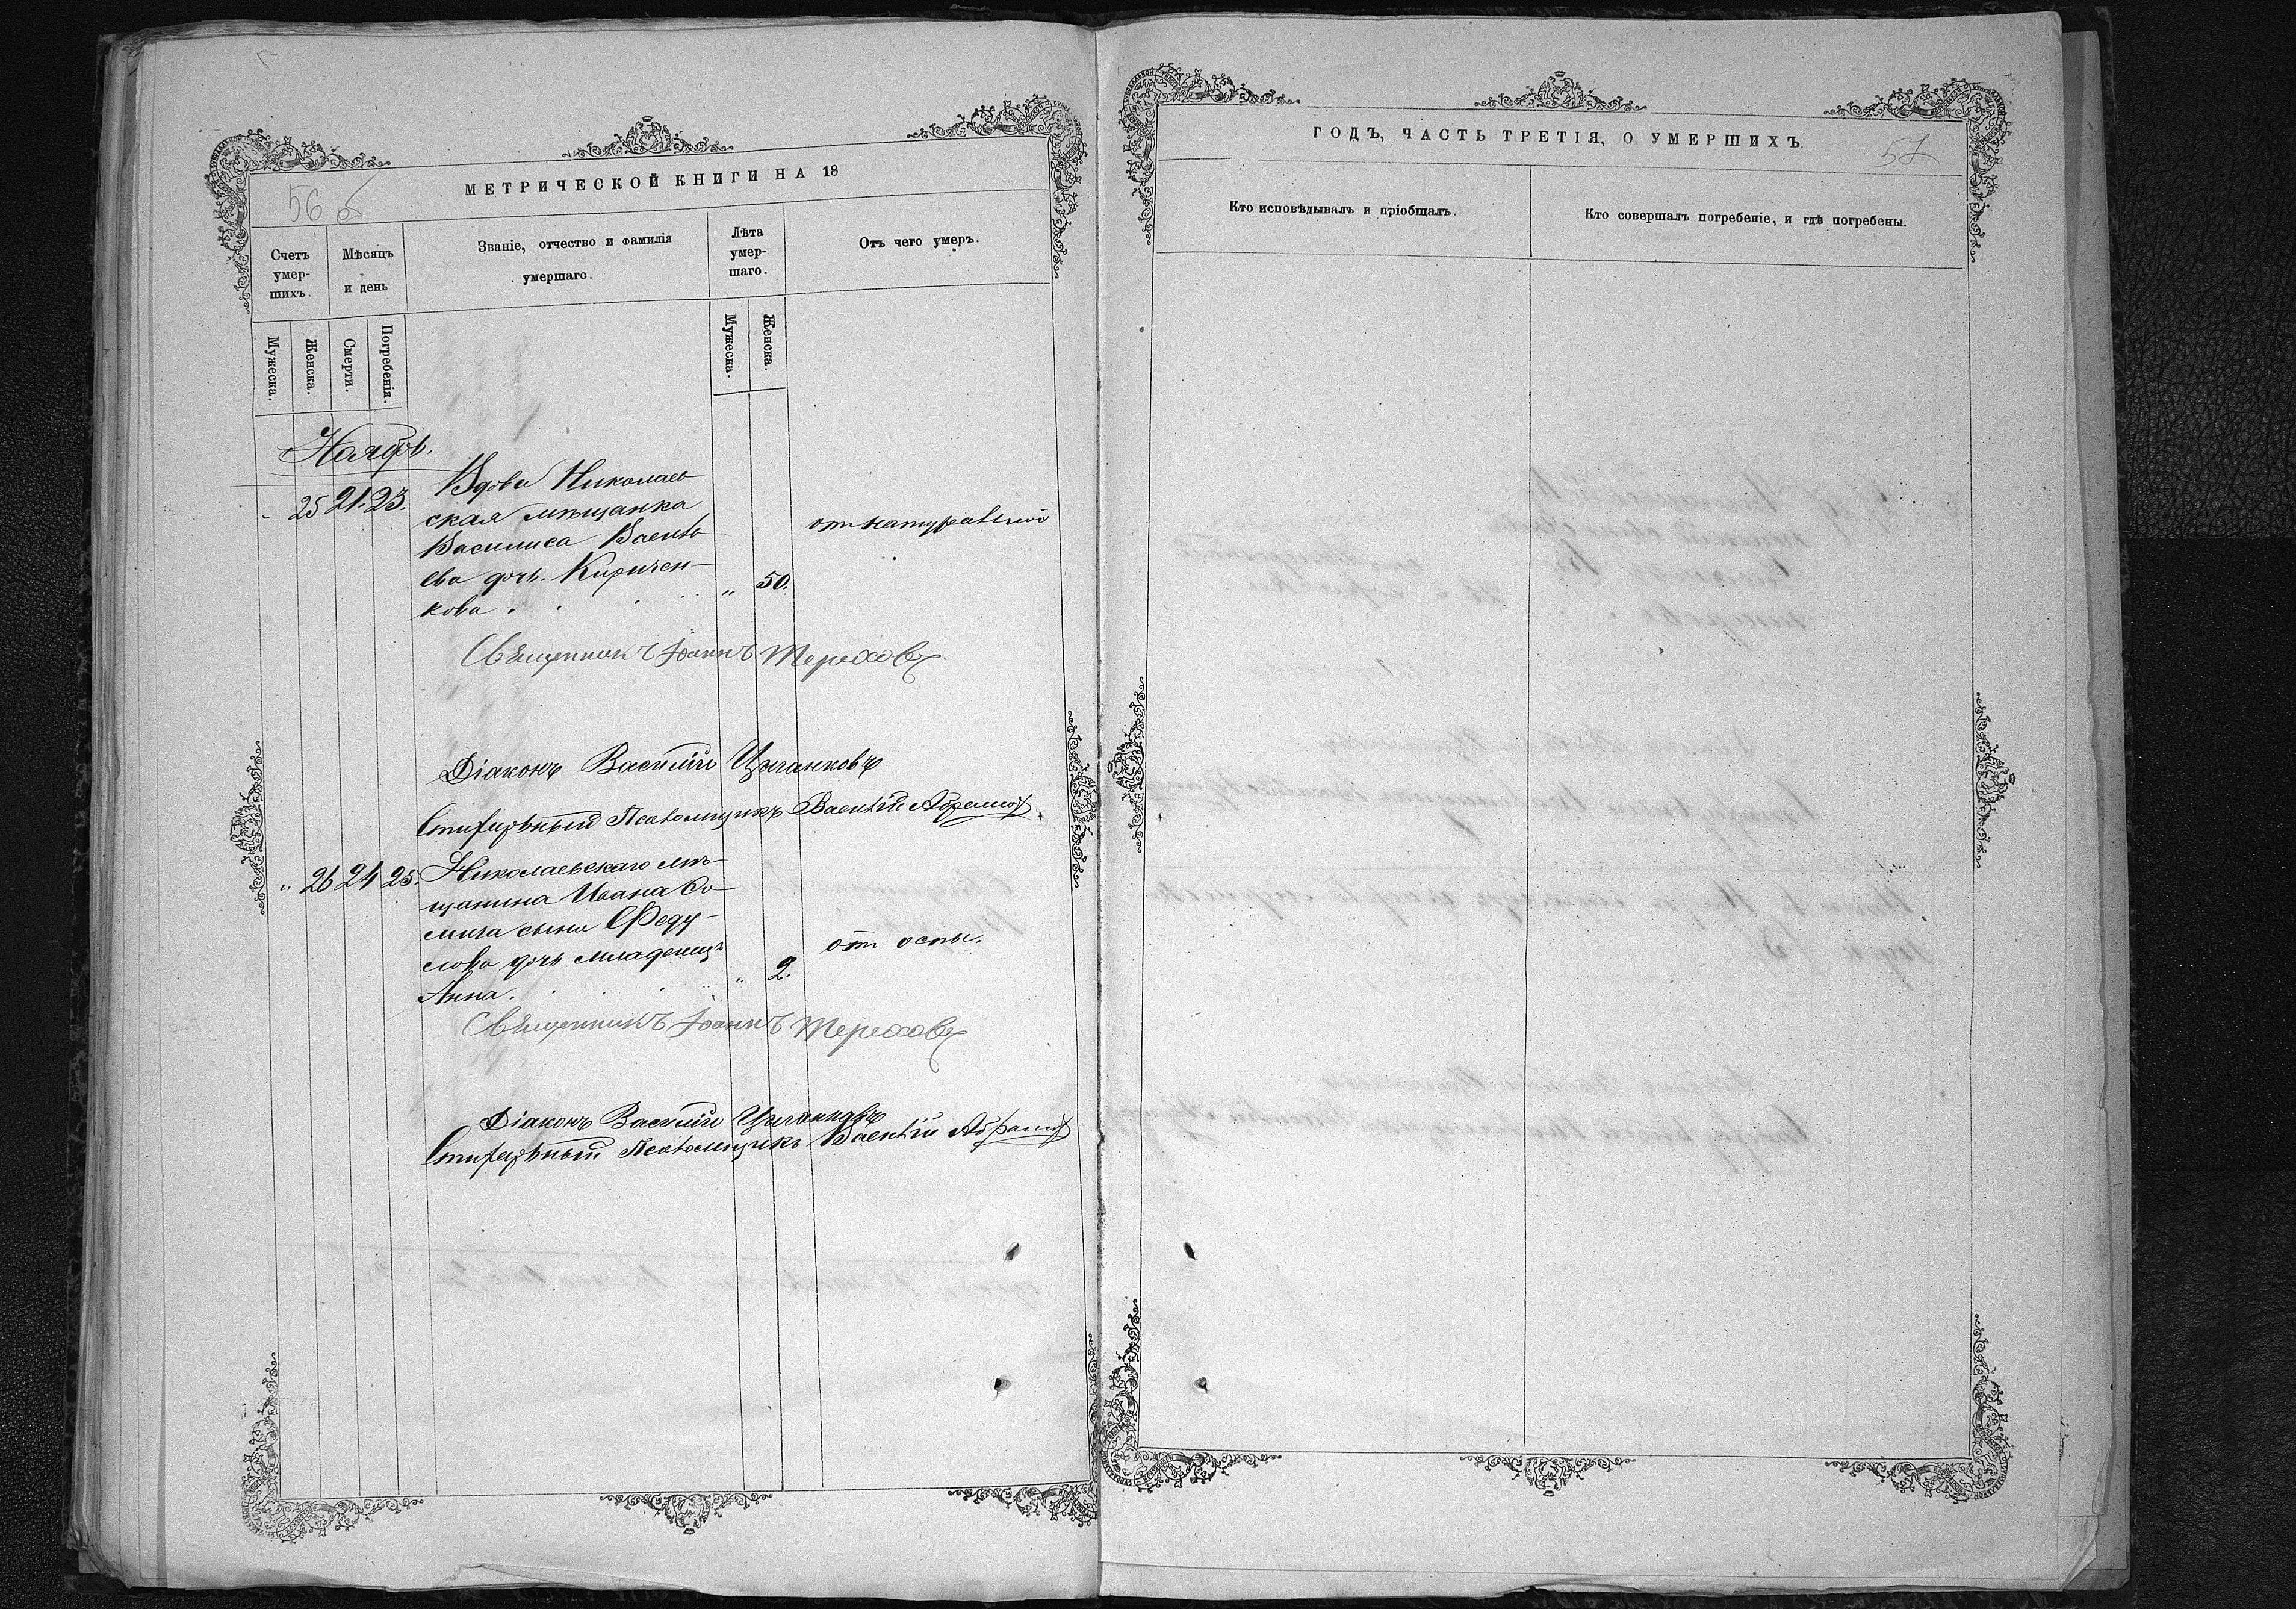 МЕТРИЧЕСКОЙ КНИГИ НА 18
56 б
Счетъ умер-шихъ.
Мѣсяцъ и день
Званіе, отчество и фамилія умершаго.
Лѣта умер-шаго.
Отъ чего умеръ.
Мужеска.
Женска.
Смерти.
Погребенія.
Мужеска.
Женска.
Ноябрь.
25 21. 23. Вдова Николаев-
ская мѣщанка
Василиса Василь-
ева дочь. Киричен-
кова . . . . „ 50.
от натуральной
Священникъ Іоаннъ Тереховъ
Діаконъ Василій Цыганковъ
Псаломщикъ Василій Абрамов
„ 26 24 25. Николаевскаго мѣ-
щанина Ивана
сына Феду-
лова дочь младенецъ
Анна. . . . „ 2.
от оспы.
Священникъ Іоаннъ Тереховъ
Діаконъ Василій Цыганковъ
Псаломщикъ Василій Абрамов
ГОДЪ, ЧАСТЬ ТРЕТІЯ, О УМЕРШИХЪ.
57
Кто исповѣдывалъ и пріобщалъ.
Кто совершалъ погребеніе, и гдѣ погребены.